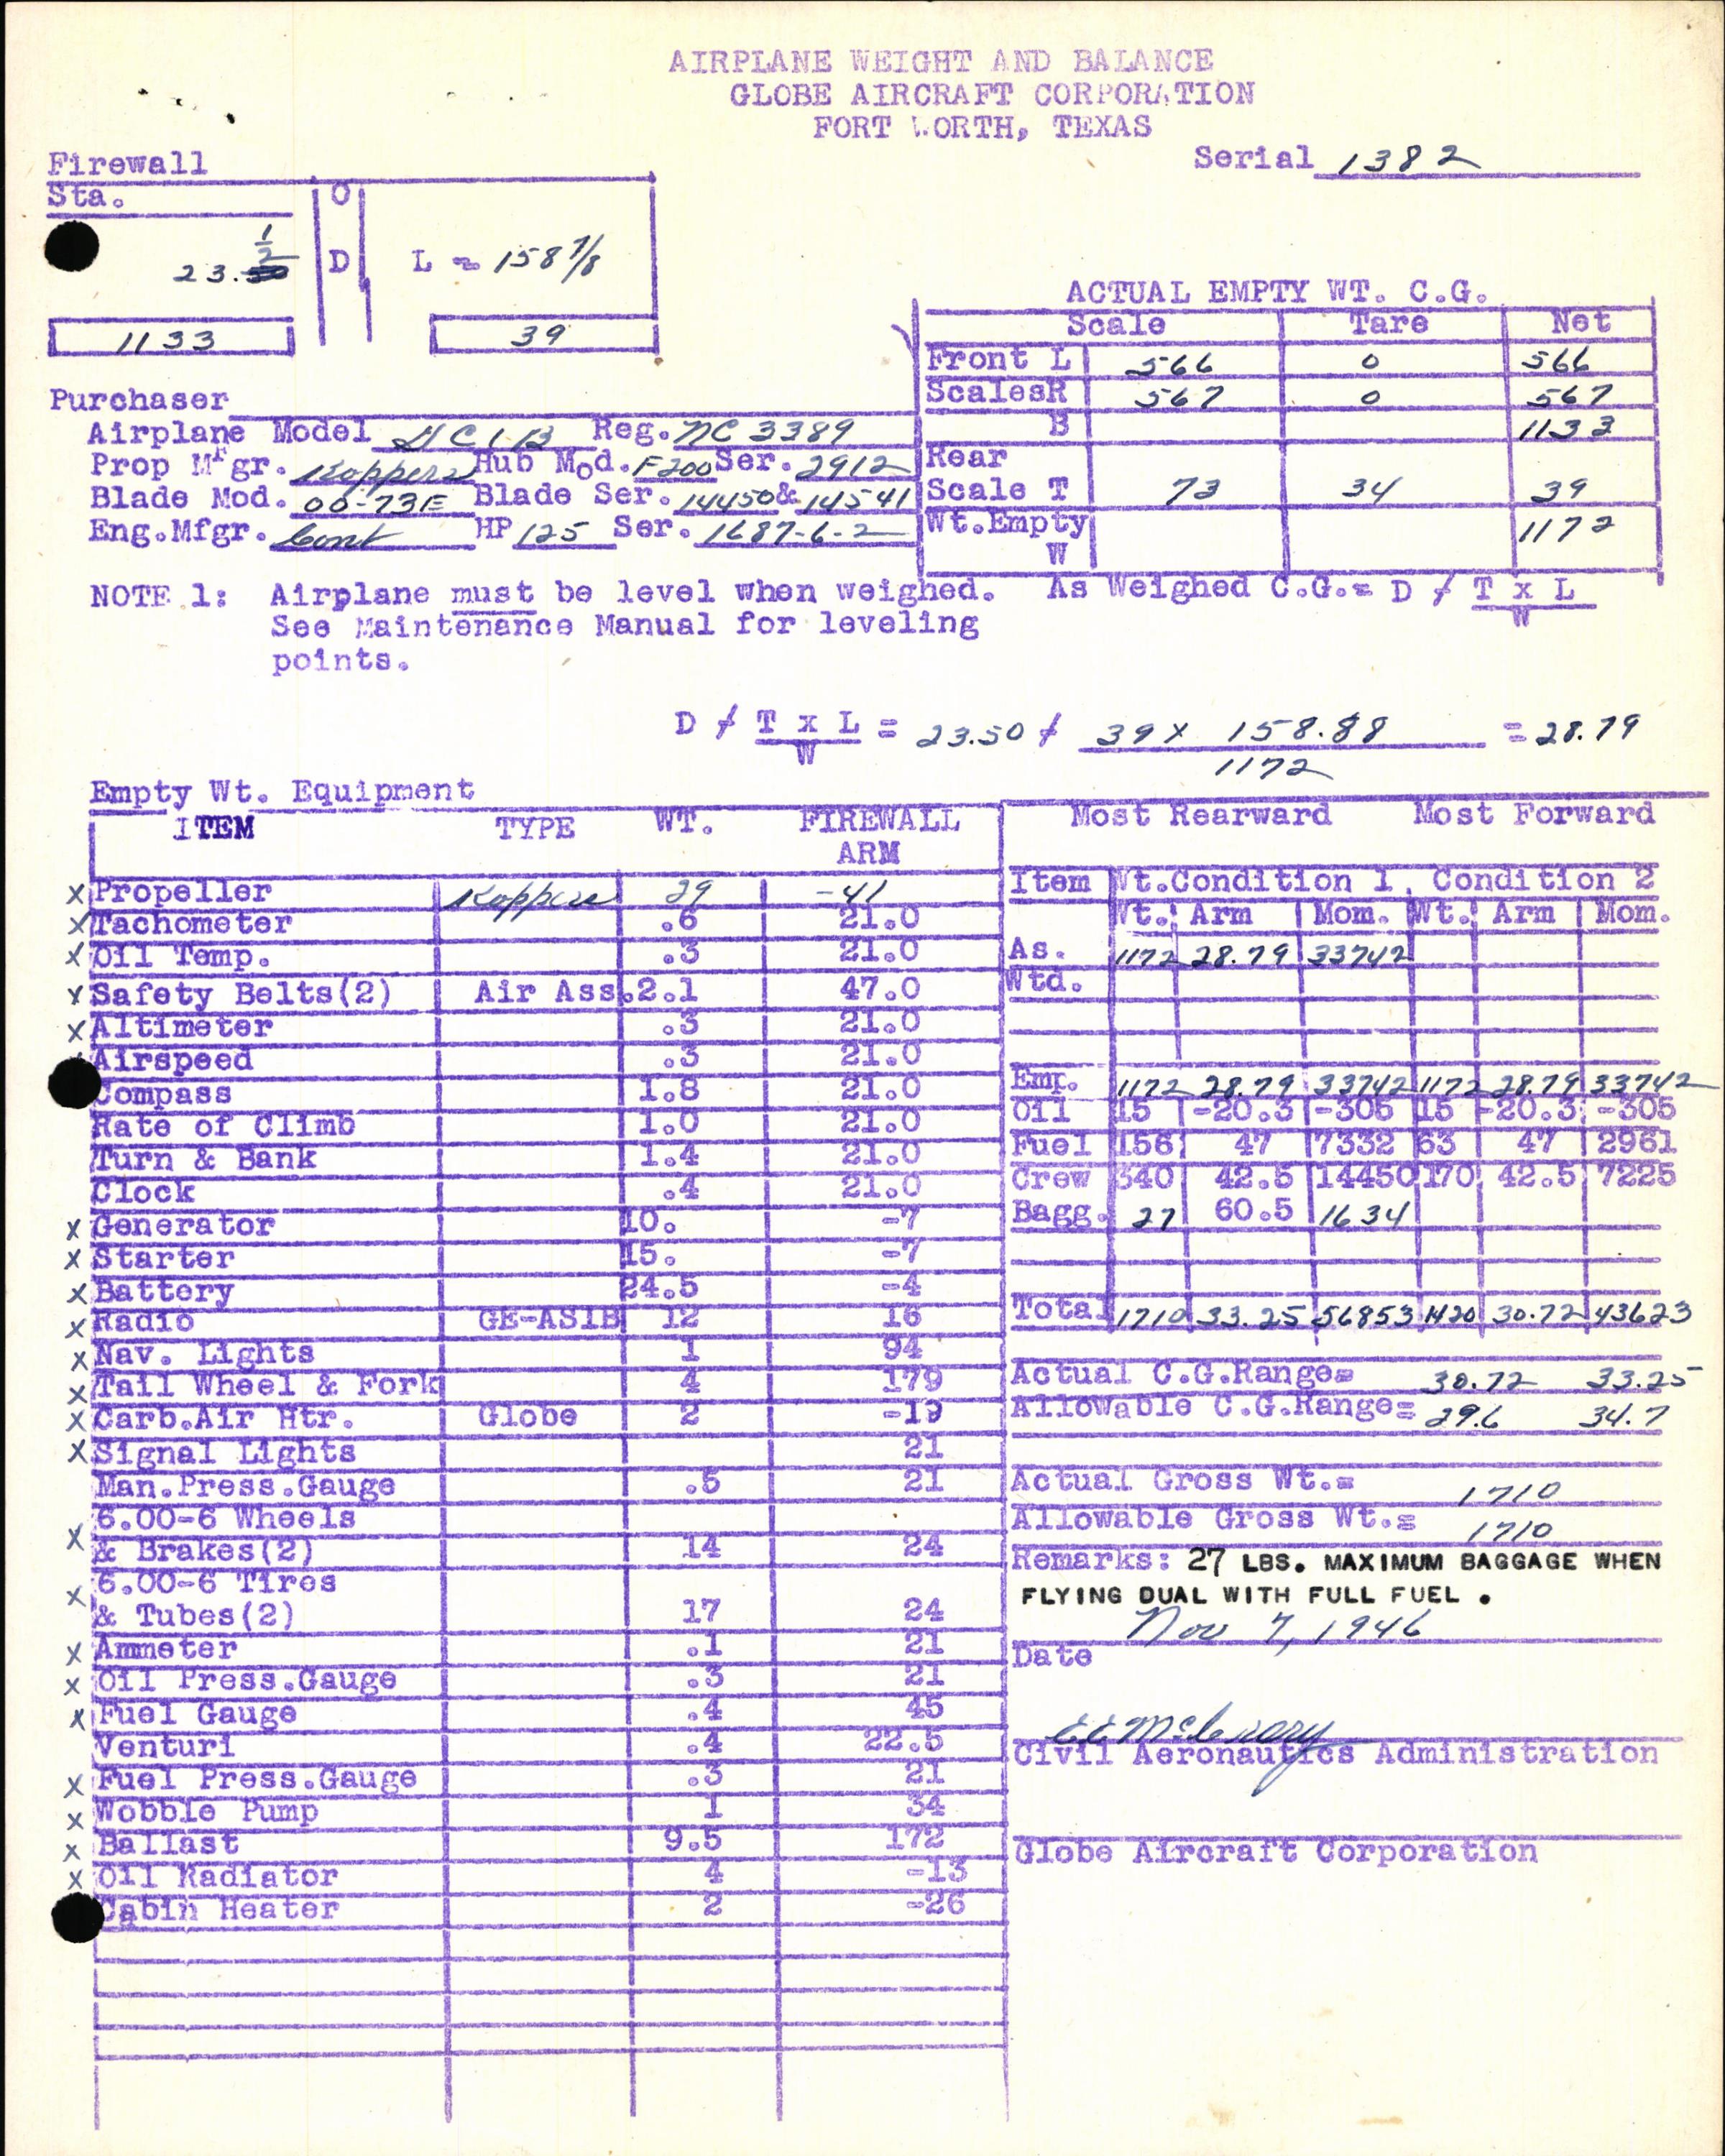 AIRPLANE WEIGHT AND BALANCE
GLOBE AIRCRAFT CORPORATION
FORT WORTH, TEXAS
Serial 1382
Firewall
Sta. O
23. 1/2 D L = 158 7/8
1133 39
ACTUAL EMPTY WT. C.G.
Scale Tare Net
Front L 566 0 566
ScalesR 567 0 567
B 1133
Rear
Scale T 73 34 39
Wt.Empty 1172
W
Purchaser
Airplane Model GC1B Reg. NC 3389
Prop Mfgr. Koppers Hub Mod. F200 Ser. 2912
Blade Mod. 00-73E Blade Ser. 14450 & 14541
Eng.Mfgr. Cont HP 125 Ser. 1687-6-2
NOTE 1: Airplane must be level when weighed. As Weighed C.G.= D / T x L
W
See Maintenance Manual for leveling
points.
D / T x L = 23.50 / 39 x 158.88 = 28.79
W 1172
Empty Wt. Equipment
ITEM TYPE WT. FIREWALL
ARM
x Propeller Koppers 29 -41
x Tachometer .6 21.0
x Oil Temp. .3 21.0
x Safety Belts(2) Air Ass. 2.1 47.0
x Altimeter .3 21.0
Airspeed .3 21.0
Compass 1.8 21.0
Rate of Climb 1.0 21.0
Turn & Bank 1.4 21.0
Clock .4 21.0
x Generator 10. -7
x Starter 15. -7
x Battery 24.5 -4
x Radio GE-AS1B 12 16
x Nav. Lights 1 94
x Tail Wheel & Fork 4 179
x Carb.Air Htr. Globe 2 -19
x Signal Lights 21
Man.Press.Gauge .5 21
6.00-6 Wheels
x & Brakes(2) 14 24
6.00-6 Tires
x & Tubes(2) 17 24
x Ammeter .1 21
x Oil Press.Gauge .3 21
x Fuel Gauge .4 45
Venturi .4 22.5
x Fuel Press.Gauge .3 21
x Wobble Pump 1 34
x Ballast 9.5 172
x Oil Radiator 4 -13
Cabin Heater 2 -26
Most Rearward Most Forward
Item Wt.Condition 1, Condition 2
Wt. Arm Mom. Wt. Arm Mom.
As. 1172 28.79 33742
Wtd.
Emp. 1172 28.79 33742 1172 28.79 33742
Oil 15 -20.3 -305 15 -20.3 -305
Fuel 156 47 7332 63 47 2961
Crew 340 42.5 14450 170 42.5 7225
Bagg. 27 60.5 1634
Total 1710 33.25 56853 1420 30.72 43623
Actual C.G.Range= 30.72 33.25
Allowable C.G.Range= 29.6 34.7
Actual Gross Wt.= 1710
Allowable Gross Wt.= 1710
Remarks: 27 LBS. MAXIMUM BAGGAGE WHEN
FLYING DUAL WITH FULL FUEL.
Nov 7, 1946
Date
Civil Aeronautics Administration
Globe Aircraft Corporation